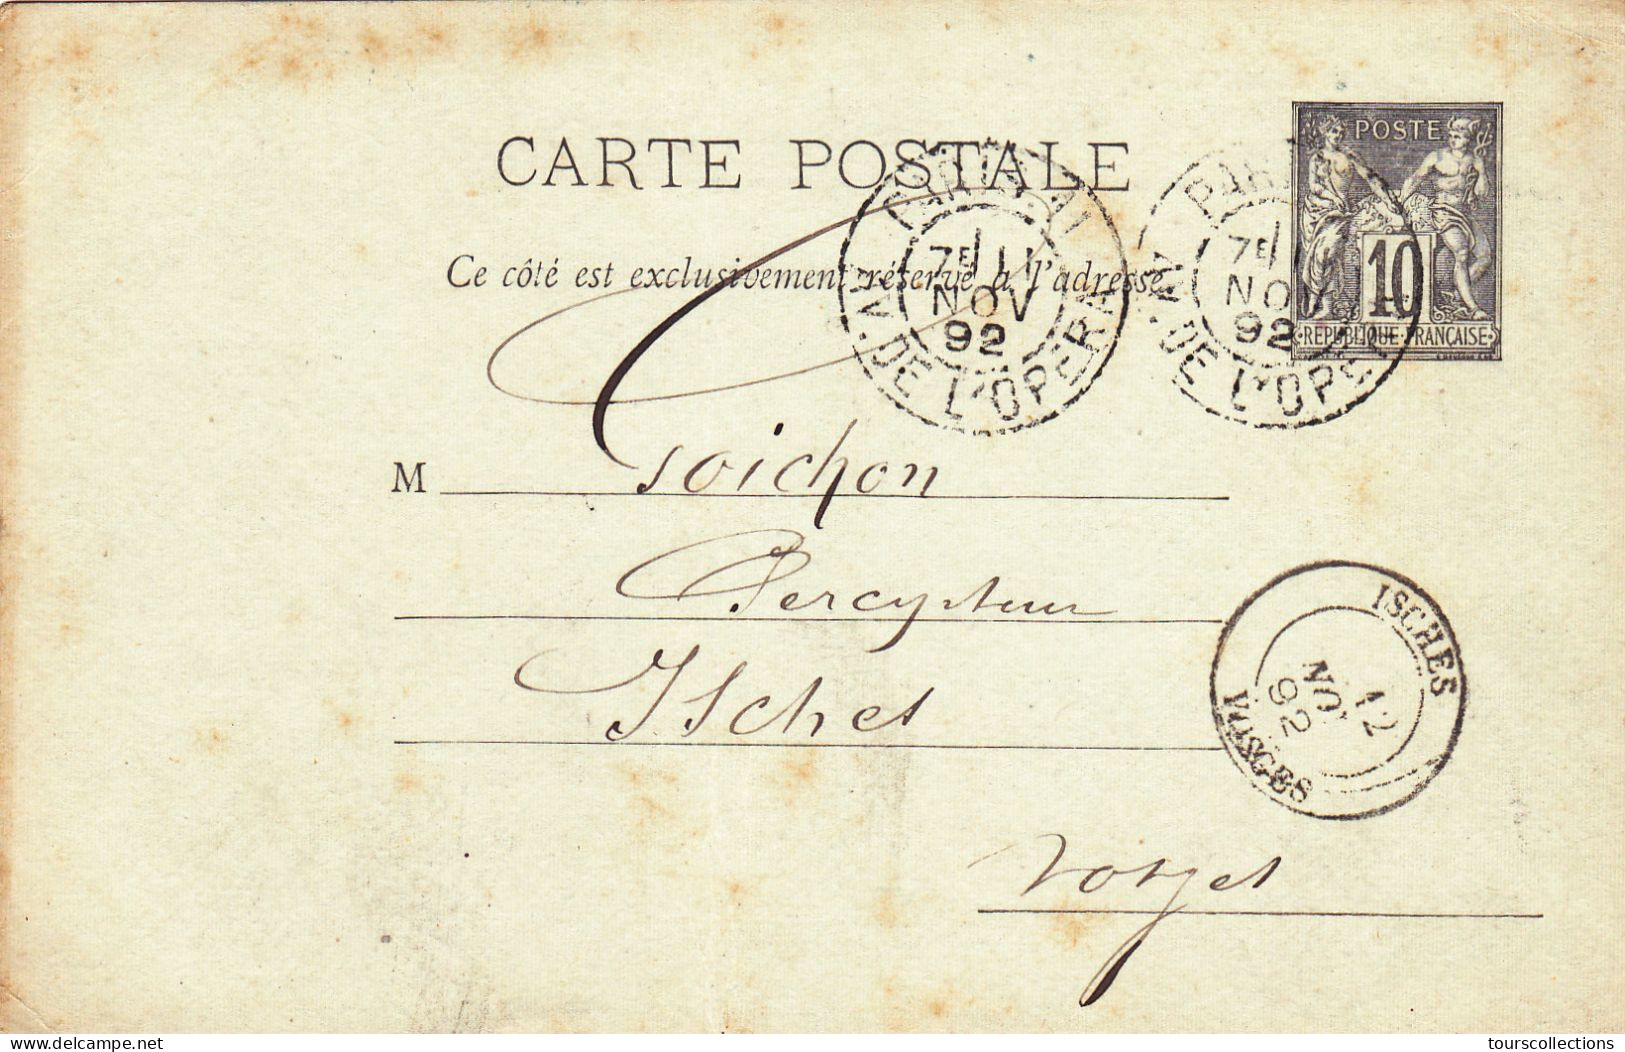 CARTE POSTALE
POSTE
10
RÉPUBLIQUE FRANÇAISE
Ce côté est exclusivement réservé à l'adresse.
7E 11
NOV
92
AV. DE L'OPERA
7E
NOV
92
AV. DE L'OPE
M Goichon
Percepteur
Isches
Vosges
ISCHES
12
NOV
92
VOSGES
delcampe.net
tourscollections